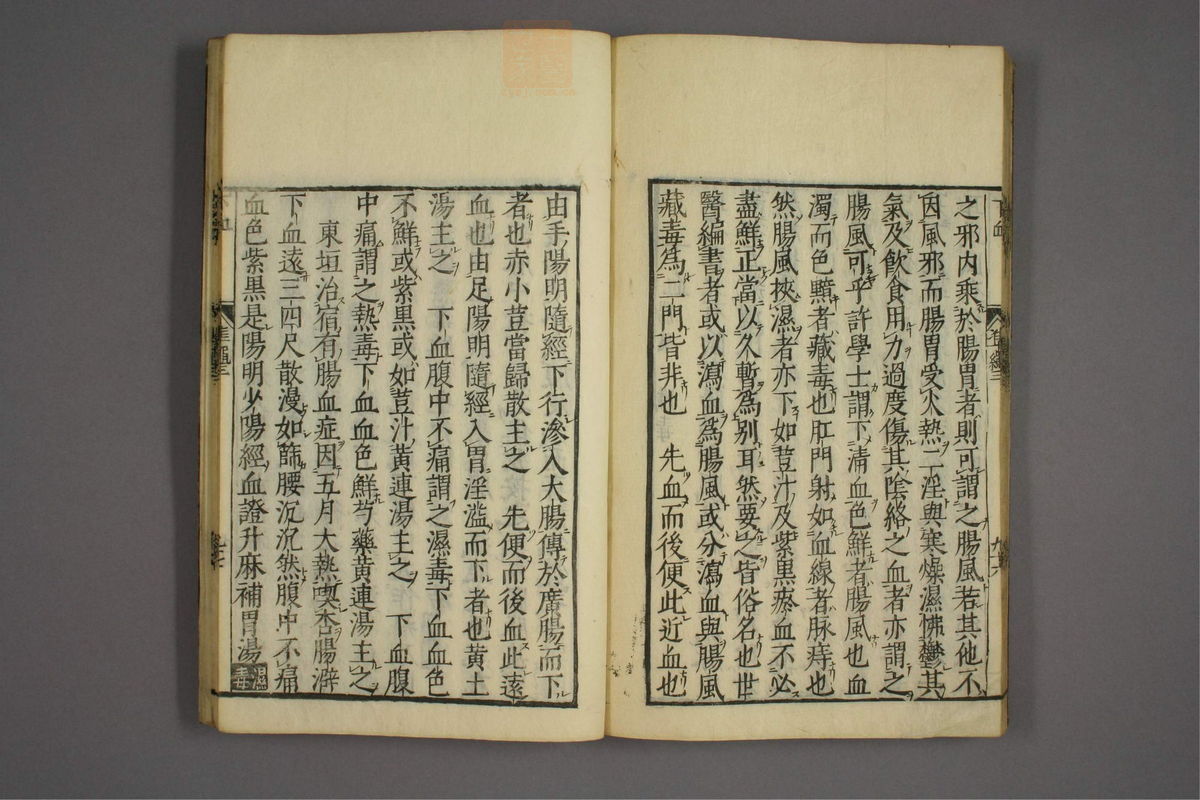 之邪内乘於腸胃者則可謂之腸風若其他不
因風邪而腸胃受火熱二淫與寒燥濕怫鬱其
氣及飲食用力過度傷其陰絡之血者亦謂之
腸風可乎許學士謂下清血色鮮者腸風也血
濁而色黯者藏毒也肛門射如血線者脉痔也
然腸風挾濕者亦下如荳汁及紫黒瘀血不必
盡鮮正當以久暫為別耳然要之皆俗名也世
醫編書者或以瀉血為腸風或分瀉血與腸風
藏毒為二門皆非也　先血而後便此近血也
由手陽明隨經下行滲入大腸傳於廣腸而下
者也赤小荳當歸散主之　先便而後血此遠
血也由足陽明隨經入胃淫溢而下者也黄土
湯主之　下血腹中不痛謂之濕毒下血血色
不鮮或紫黒或如荳汁黄連湯主之　下血腹
中痛謂之熱毒下血血色鮮芍藥黄連湯主之
東垣治宿有腸血症因五月大熱喫杏腸澼
下血遠三四尺散漫如篩腰沉沉然腹中不痛
血色紫黒是陽明少陽經血證升麻補胃湯
濕毒